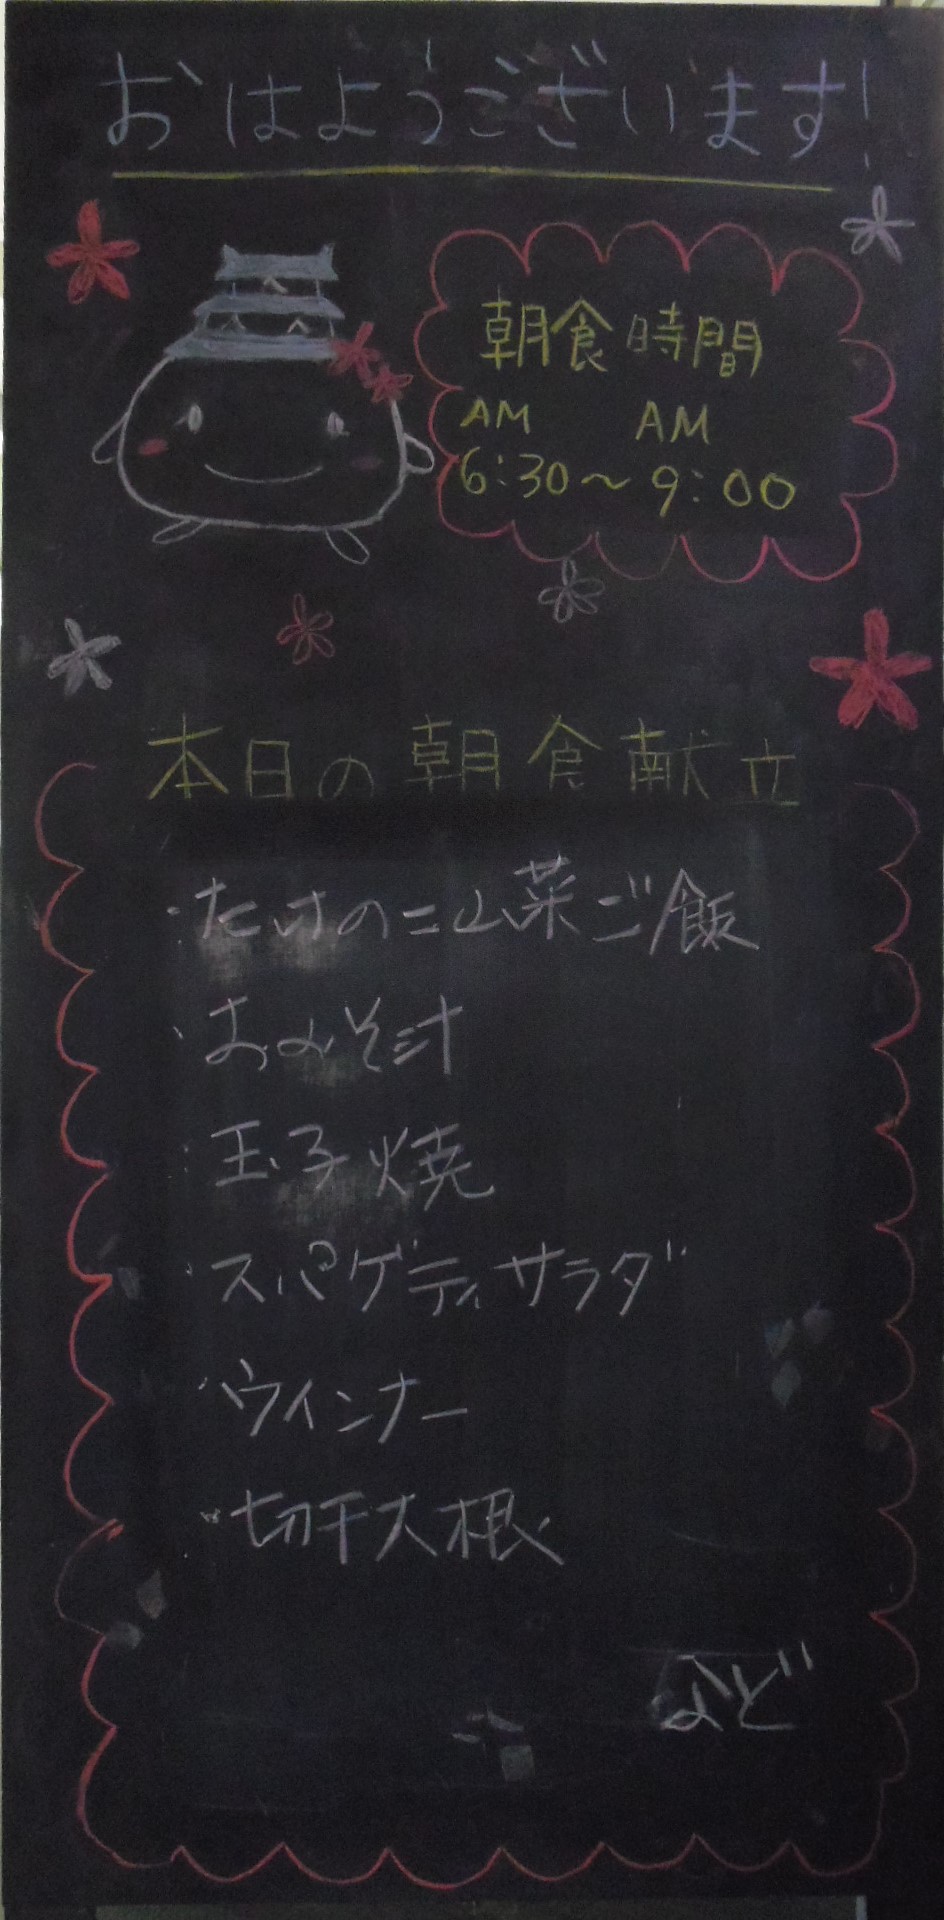 おはようございます!
朝食時間
AM AM
6:30～9:00
本日の朝食献立
・たけのこ山菜ご飯
・おみそ汁
・玉子焼
・スパゲティサラダ
・ウインナー
・切干大根
など